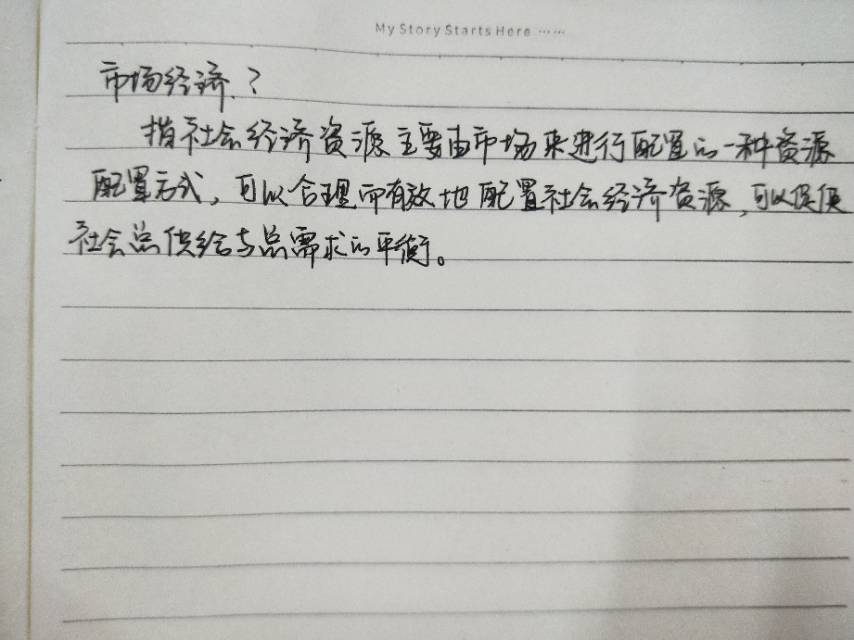 My Story Starts Here ……
市场经济？
指社会经济资源主要由市场来进行配置的一种资源
配置方式，可以合理而有效地配置社会经济资源，可以促使
社会总供给与总需求的平衡。